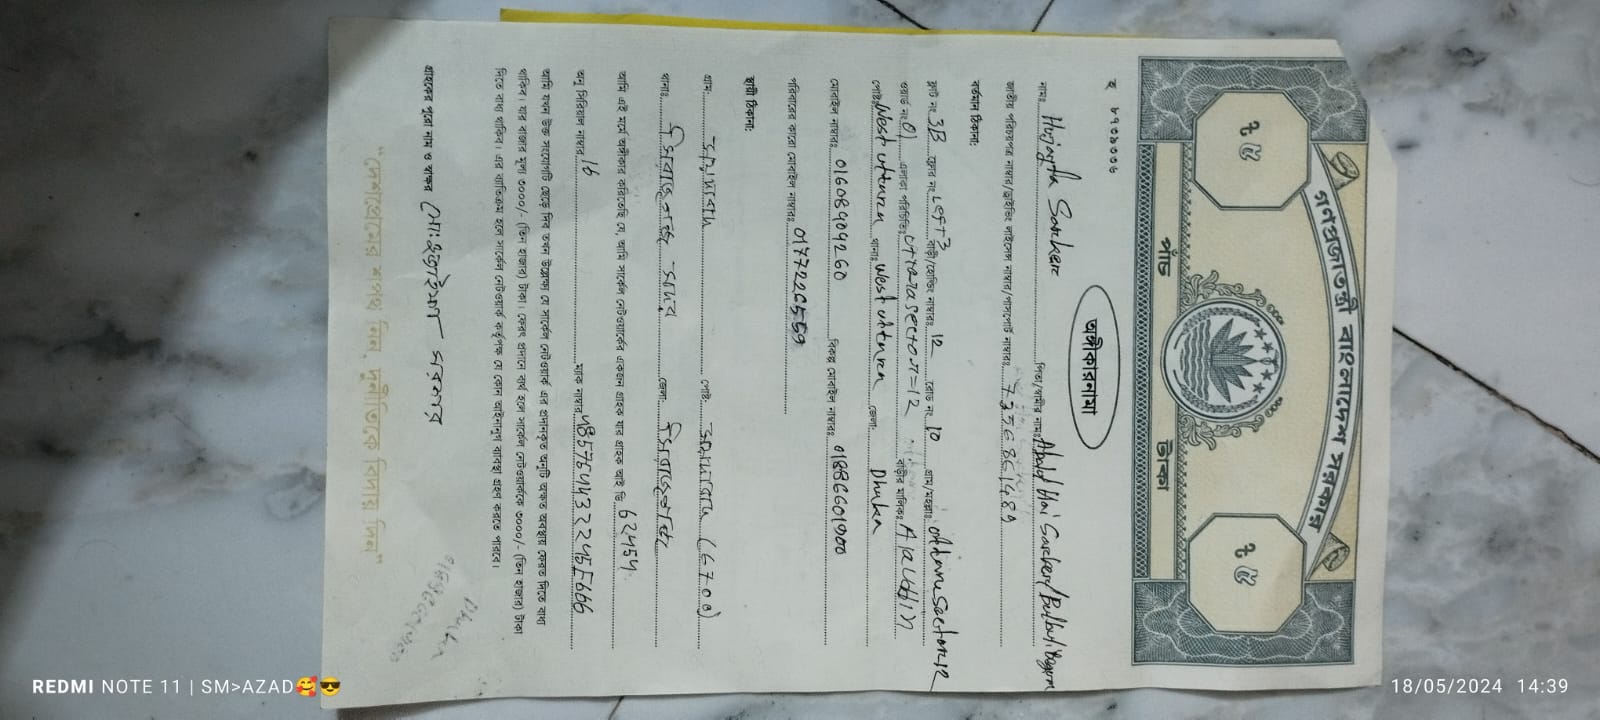 গণপ্রজাতন্ত্রী বাংলাদেশ সরকার
২ ৫ ২ ৫
পাঁচ টাকা
অঙ্গীকারনামা
নামঃ Hujayfa Sarker পিতা/স্বামীর নামঃ Abdul Hai Sarker/Bulbuli Begom
জাতীয় পরিচয়পত্র নাম্বার/ড্রাইভিং লাইসেন্স নাম্বার/পাসপোর্ট নাম্বারঃ
বর্তমান ঠিকানা:
ফ্লাট নং 3B ফ্লোর নং Left 3 বাড়ী/হোল্ডিং নাম্বারঃ 12 রোড নং 10 গ্রাম/মহল্লাঃ
ওয়ার্ড নং 01 এলাকা পরিচিতিঃ uttarasector=12 বাড়ীর মালিকঃ
পোষ্টঃ West uttara থানাঃ West uttara জেলা: Dhaka
মোবাইল নাম্বারঃ 01608909260 বিকল্প মোবাইল নাম্বারঃ 01886601900
পরিবারের কারো মোবাইল নাম্বারঃ 01772265559
স্থায়ী ঠিকানা:
গ্রাম: পোষ্ট: (6700)
থানাঃ সিরাজগঞ্জ সদর জেলা: সিরাজগঞ্জ
আমি এই মর্মে অঙ্গীকার করিতেছি যে, আমি সার্কেল নেটওয়ার্কের একজন গ্রাহক যার গ্রাহক আই ডি 62454
অনু সিরিয়াল নাম্বার 16 ম্যাক নাম্বার
আমি যখন উক্ত সংযোগটি ছেড়ে দিব তখন উল্লেখ্য যে সার্কেল নেটওয়ার্ক এর প্রদানকৃত অনুটি অক্ষত অবস্থায় ফেরত দিতে বাধ্য
থাকিব। যার বাজার মূল্য ৩০০০/- (তিন হাজার) টাকা। ফেরৎ প্রদানে ব্যর্থ হলে সার্কেল নেটওয়ার্ককে ৩০০০/- (তিন হাজার) টাকা
দিতে বাধ্য থাকিব। এর ব্যতিক্রম হলে সার্কেল নেটওয়ার্ক কর্তৃপক্ষ যে কোন আইনানুগ ব্যবস্থা গ্রহন করতে পারবে।
গ্রাহকের পুরো নাম ও স্বাক্ষর মো: হুজাইফা সরকার
"দেশপ্রেমের শপথ নিন, দুর্নীতিকে বিদায় দিন"
REDMI NOTE 11 | SM>AZAD🥰😎
18/05/2024 14:39